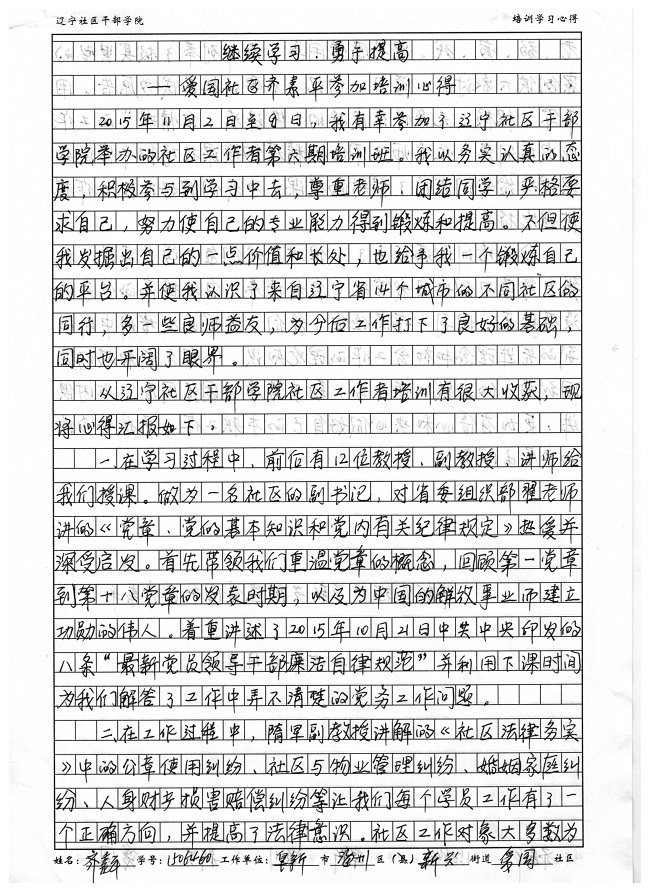 辽宁社区干部学院 培训学习心得
继续学习·勇于提高
——爱国社区齐素平参加培训心得
2015年11月2日至8日，我有幸参加了辽宁社区干部
学院举办的社区工作者第六期培训班。我以务实认真的态
度，积极参与到学习中去，尊重老师、团结同学，严格要
求自己，努力使自己的专业能力得到锻炼和提高。不但使
我发掘出自己的一点价值和长处，也给予我一个锻炼自己
的平台。并使我认识了来自辽宁省14个城市的不同社区的
同行，多一些良师益友，为今后工作打下了良好的基础，
同时也开阔了眼界。
从辽宁社区干部学院社区工作者培训有很大收获，现
将心得汇报如下：
一、在学习过程中，前后有12位教授、副教授、讲师给
我们授课。做为一名社区的副书记，对省委组织部翟老师
讲的《党章、党的基本知识和党内有关纪律规定》热爱并
深受启发。首先带领我们重温党章的概念，回顾第一党章
到第十八党章的发表时期，以及为中国的解放事业师建立
功勋的伟人。着重讲述了2015年10月21日中共中央印发的
八条“最新党员领导干部廉洁自律规范”并利用下课时间
为我们解答了工作中弄不清楚的党务工作问题。
二、在工作过程中，隋军副教授讲解的《社区法律务实
》中的公章使用纠纷、社区与物业管理纠纷、婚姻家庭纠
纷、人身财产损害赔偿纠纷等让我们每个学员工作有了一
个正确方向，并提高了法律意识。社区工作对象大多数为
姓名： 学号：1506460 工作单位：阜新 市 海州 区（县） 新兴 街道 爱国 社区